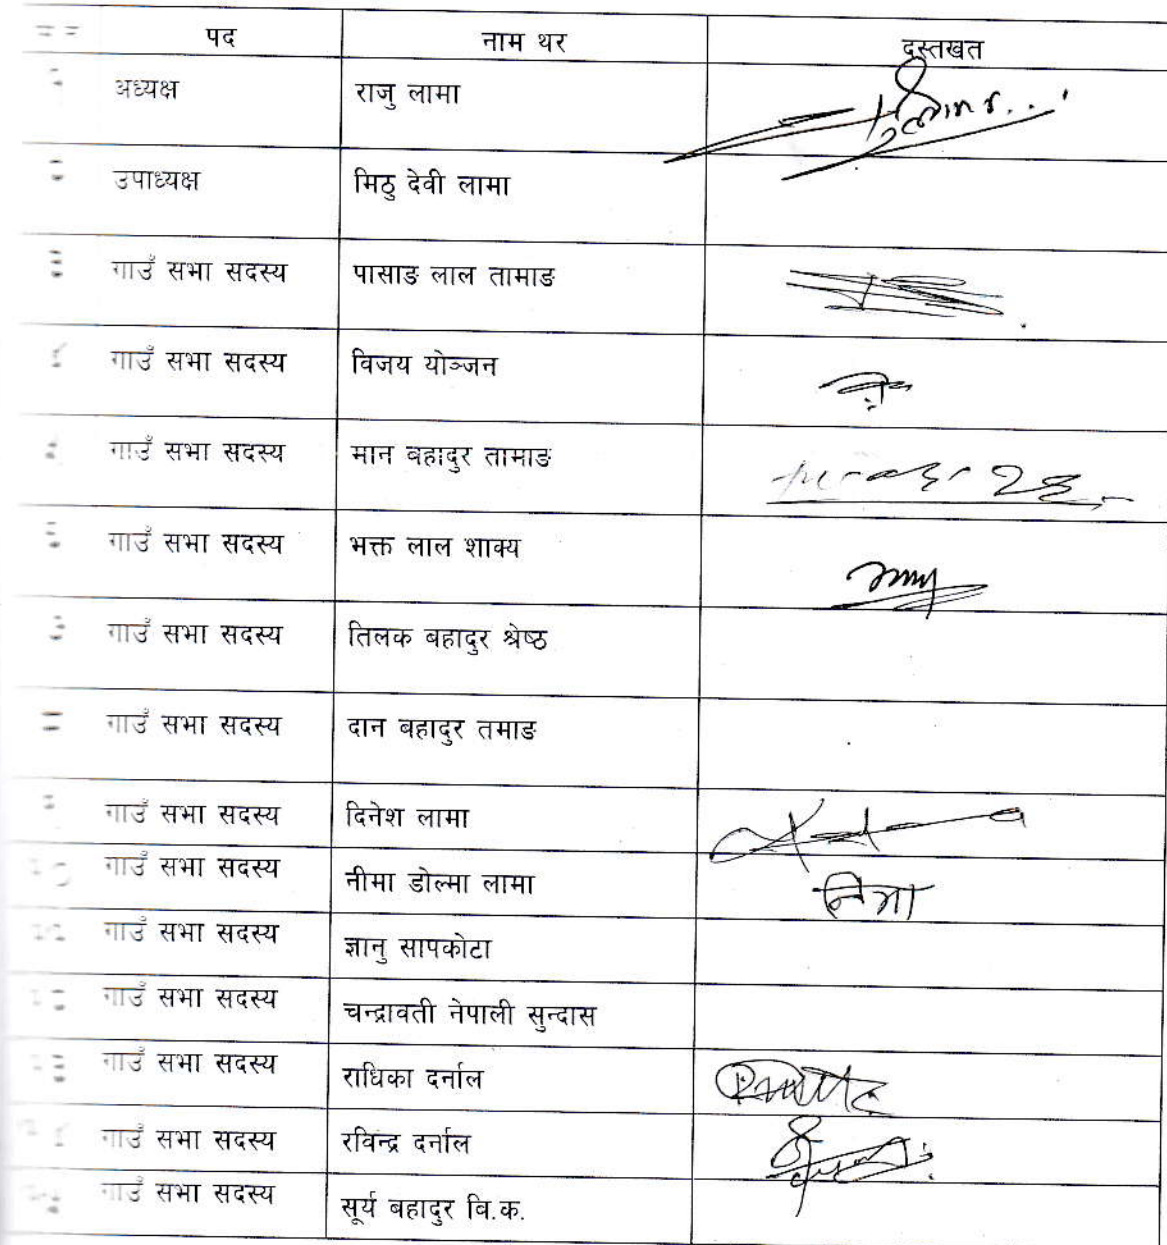 पद नाम थर दस्तखत
अध्यक्ष राजु लामा
उपाध्यक्ष मिठु देवी लामा
गाउँ सभा सदस्य पासाङ लाल तामाङ
गाउँ सभा सदस्य विजय योञ्जन
गाउँ सभा सदस्य मान बहादुर तामाङ
गाउँ सभा सदस्य भक्त लाल शाक्य
गाउँ सभा सदस्य तिलक बहादुर श्रेष्ठ
गाउँ सभा सदस्य दान बहादुर तमाङ
गाउँ सभा सदस्य दिनेश लामा
गाउँ सभा सदस्य नीमा डोल्मा लामा निमा
गाउँ सभा सदस्य ज्ञानु सापकोटा
गाउँ सभा सदस्य चन्द्रावती नेपाली सुन्दास
गाउँ सभा सदस्य राधिका दर्नाल
गाउँ सभा सदस्य रविन्द्र दर्नाल
गाउँ सभा सदस्य सूर्य बहादुर वि.क.